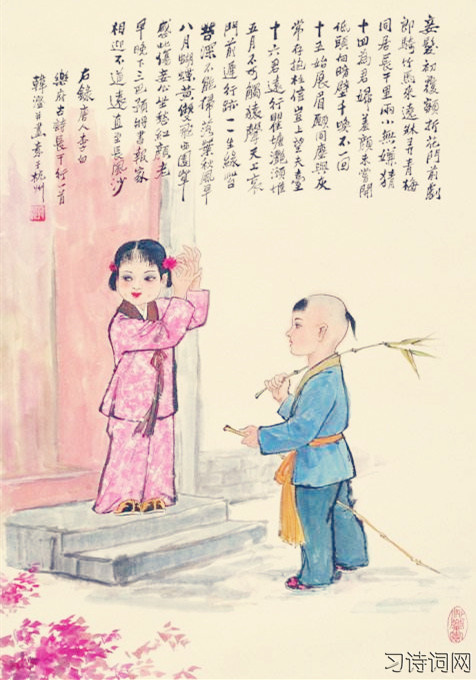 妾髮初覆額折花門前劇
郎騎竹馬來遶牀弄青梅
同居長干里兩小無嫌猜
十四為君婦羞顏未嘗開
低頭向暗壁千喚不一回
十五始展眉願同塵與灰
常存抱柱信豈上望夫臺
十六君遠行瞿塘灩澦堆
五月不可觸猿聲天上哀
門前遲行跡一一生綠苔
苔深不能掃落葉秋風早
八月蝴蝶黃雙飛西園草
感此傷妾心坐愁紅顏老
早晚下三巴預將書報家
相迎不道遠直至長風沙
右錄唐人李白
樂府古詩長干行一首
杭州
习诗词网